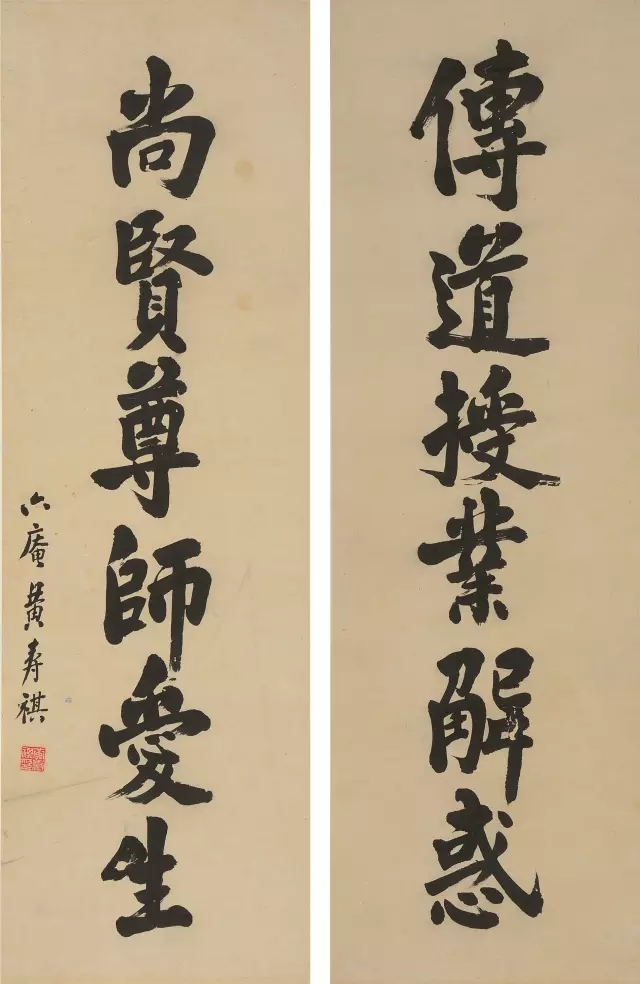 傳道授業解惑
尚賢尊師愛生
六庵黃寿祺